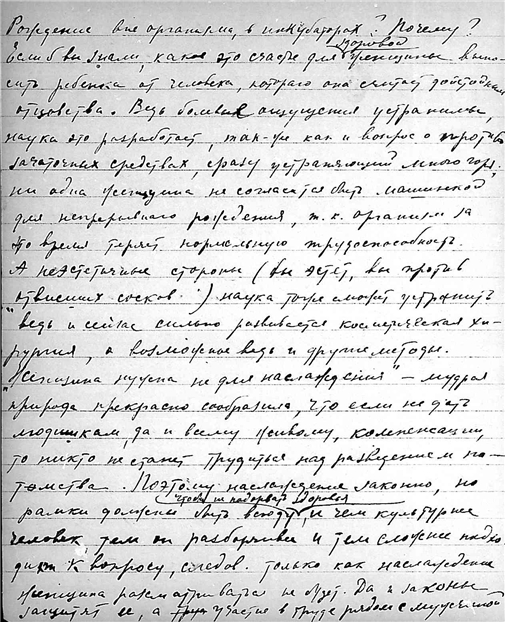 Рождение вне организма, в инкубаторах? Почему?
Если б вы знали, какое это счастье для здоровой женщины выно-
сить ребенка от человека, которого она считает достойным
отцовства. Ведь болевые ощущения устранимы,
наука это разработает, так-же как и вопрос о противо-
зачаточных средствах, сразу устраняющий много горя,
ни одна женщина не согласится быть машинкой
для непрерывного рождения, т.к. организм за
это время теряет нормальную трудоспособность.
А неэстетичные стороны (вы эстет, вы против
"отвисших сосков".) наука тоже может устранить
ведь и сейчас сильно развивается косметическая хи-
рургия, а возможное ведь и другие методы.
"Женщина нужна не для наслаждения" — мудрая
природа прекрасно сообразила, что если не дать
людишкам, да и всему живому, компенсации,
то никто не станет трудиться над разведением по-
томства. Поэтому наслаждение законно, но
рамки должны быть всюду, чтобы не подорвать здоровья, и чем культурнее
человек, тем он разборчивее и тем сложнее подхо-
дит к вопросу, следов. только как наслаждение
женщина рассматриваться не будет. Да и законы
защитят ее, а участие в труде рядом с мужчиной